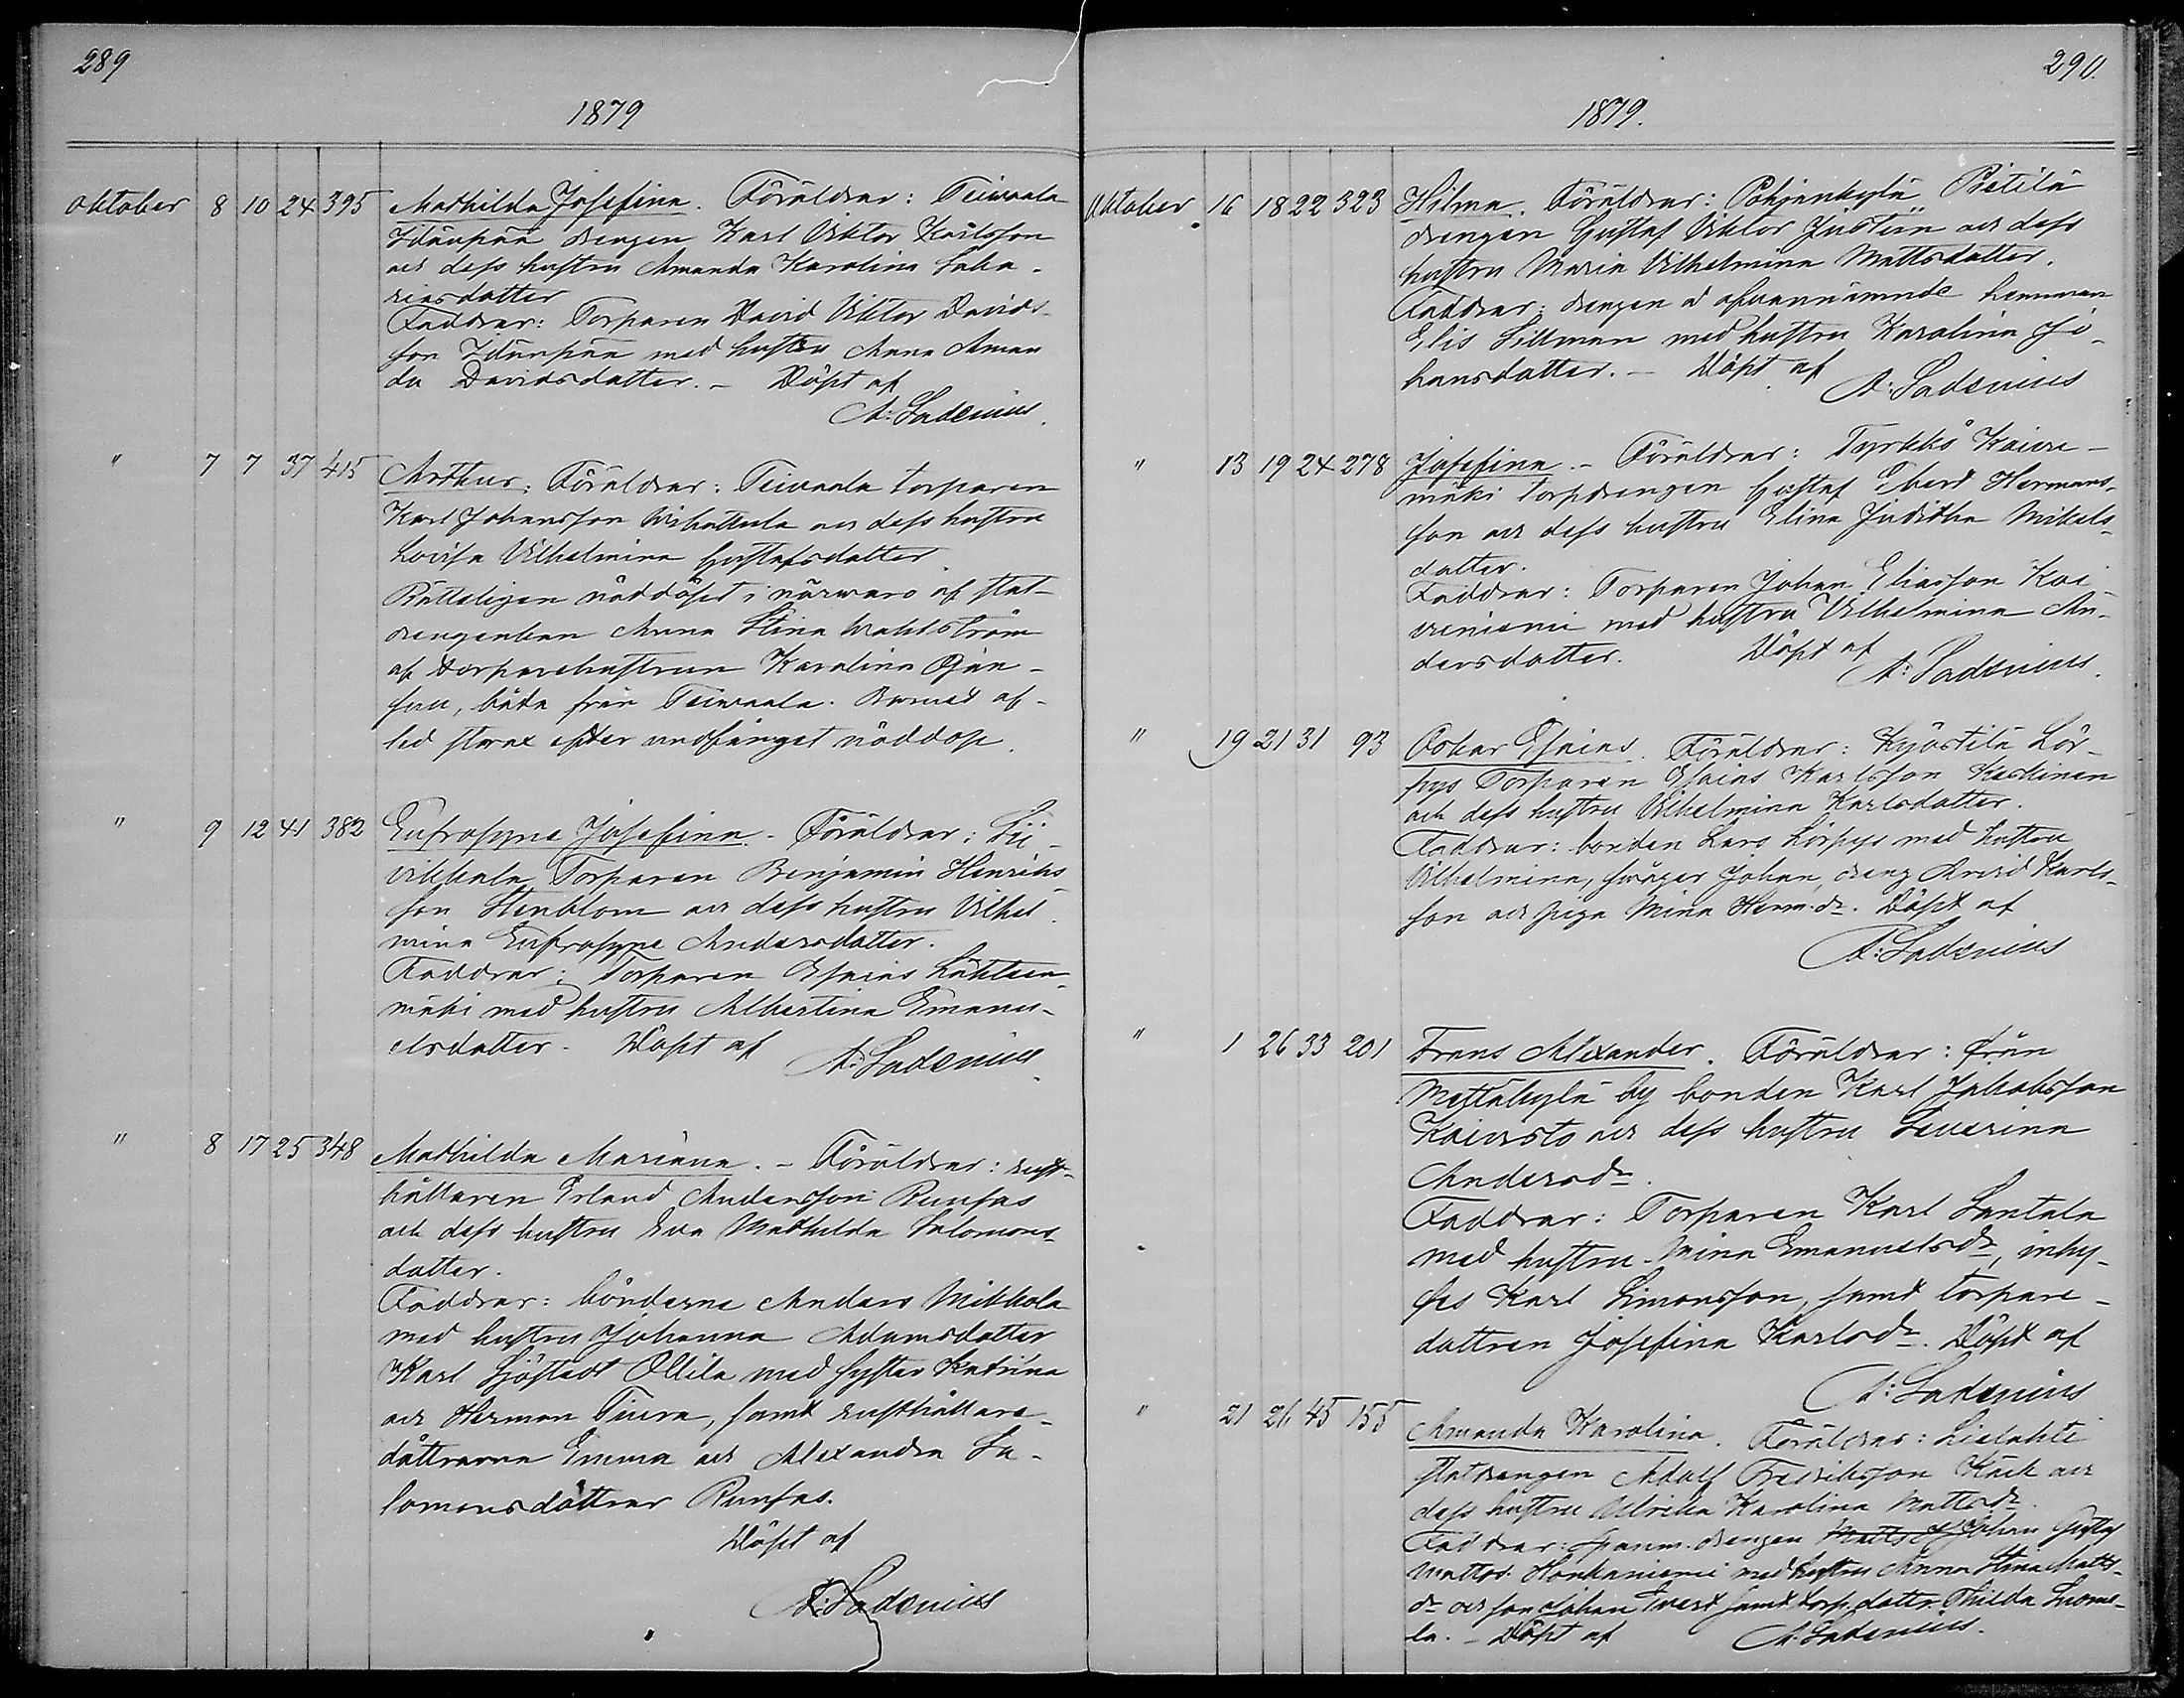 289
1879
Oktober 8 10 24 395 Mathilda Josefina. Föräldrar: Teivaala
drengen Karl Viktor Karlsson
och dess hustru Amanda Karolina Saka-
riasdotter
Faddrar: Torparen David Viktor Davids-
son med hustru Anna Aman
da Davidsdotter. – Döpt af
A: Ladenius.
" 7 7 37 415 Arthur. Föräldrar: Teivaala torparen
Karl Johansson och dess hustru
Lovisa Vilhelmina Gustafsdotter.
Rätteligen nöddöpt i närwaro af stat-
drengenkan Anna Stina Wahlström
af torparehustrun Karolina
, båda från Teivaala. Barnet af-
led strax efter undfånget nöddop.
" 9 12 41 382 Eufrosyne Josefina. Föräldrar: Sii-
vikkala Torparen Benjamin Henriks-
son Stenblom och dess hustru Vilhel-
mina Eufrosyne Andersdotter.
Faddrar: Torparen Esaias Lähteen-
mäki med hustru Albertina Emanu-
elsdotter. Döpt af
A: Ladenius
" 8 17 25 348 Mathilda Mariana. – Föräldrar: rust-
hållaren Erland Andersson Runsas
och dess hustru Eva Mathilda Salomons-
dotter.
Faddrar: bönderne Anders Mikkola
med hustru Johanna Adamsdotter
Karl Sjöstedt Ollila med syster Katrina
och Herman Tiura, samt rusthållare-
döttrarne Emma och Alexandra Sa-
lomonsdöttrar Runsas.
Döpt af
A: Ladenius
290.
1879.
Oktober 16 18 22 323 Hilma. Föräldrar: Pohjankylä Pietilä
drengen Gustaf Viktor Justiin och dess
hustru Maria Vilhelmina Mattsdotter.
Faddrar: drengen å ofvannämnde hemman
Elis Sillman med hustru Karolina Jo-
hansdotter. – Döpt af
A: Ladenius
" 13 19 24 278 Josefina. – Föräldrar: Tyrkkö Koivu-
mäki torpdrengen Gustaf Edvard Hermans-
son och dess hustru Elina Juditha Mikels-
dotter.
Faddrar: Torparen Johan Eliasson Koi-
vuniemi med hustru Vilhelmina An-
dersdotter. Döpt af
A: Ladenius.
" 19 21 31 93 Oskar Esaias. Föräldrar: Kyöstilä Lör-
pys Torparen Esaias Karlsson Koskinen
och dess hustru Vilhelmina Karlsdotter.
Faddrar: bonden Lars Lörpys med hustru
Vilhelmina, svåger Johan, dreng Arvid Karls-
son och piga Mina Herm.dr. Döpt af
A: Ladenius
" 1 26 33 201 Frans Alexander. Föräldrar: från
Mettäkylä by bonden Karl Jakobsson
Koivisto och dess hustru Severina
Andersdr.
Faddrar: Torparen Karl Santala
med hustru Mina Emanuelsdr, inhy-
ses Karl Simonsson, samt torpare-
dottren Josefina Karlsdr. Döpt af
A: Ladenius
" 21 26 45 155 Amanda Karolina. Föräldrar: Lielahti
statdrengen Adolf Fredriksson Käck och
dess hustru Ulrika Karolina Mattsdr.
Faddrar: spanm. drengen Matts Johan Gustaf
Mattss. Honkaniemi med hustru Anna Stina Matts-
dr och son Johan Evert samt torp.dottr. Thilda Luoma-
la. – Döpt af A. Ladenius.